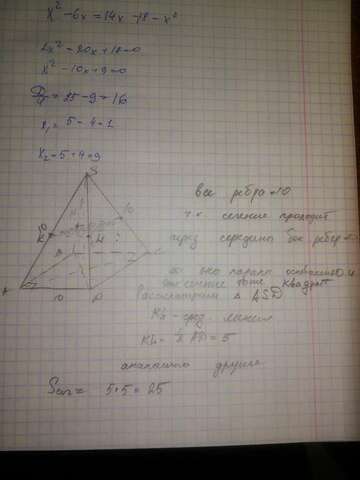 x² - 6x = 14x - 18 - x²
2x² - 20x + 18 = 0
x² - 10x + 9 = 0
D/4 = 25 - 9 = 16
x₁ = 5 - 4 = 1
x₂ = 5 + 4 = 9
S
10
10
K
L
B
C
A
10
D
все ребра = 10
т.к сечение проходит
через середины бок ребер
оно паралл основанию
сечение тоже квадрат
Рассмотрим △ ASD
KL - сред. линия
KL = 1/2 AD = 5
аналогично другие
Sсеч = 5·5 = 25